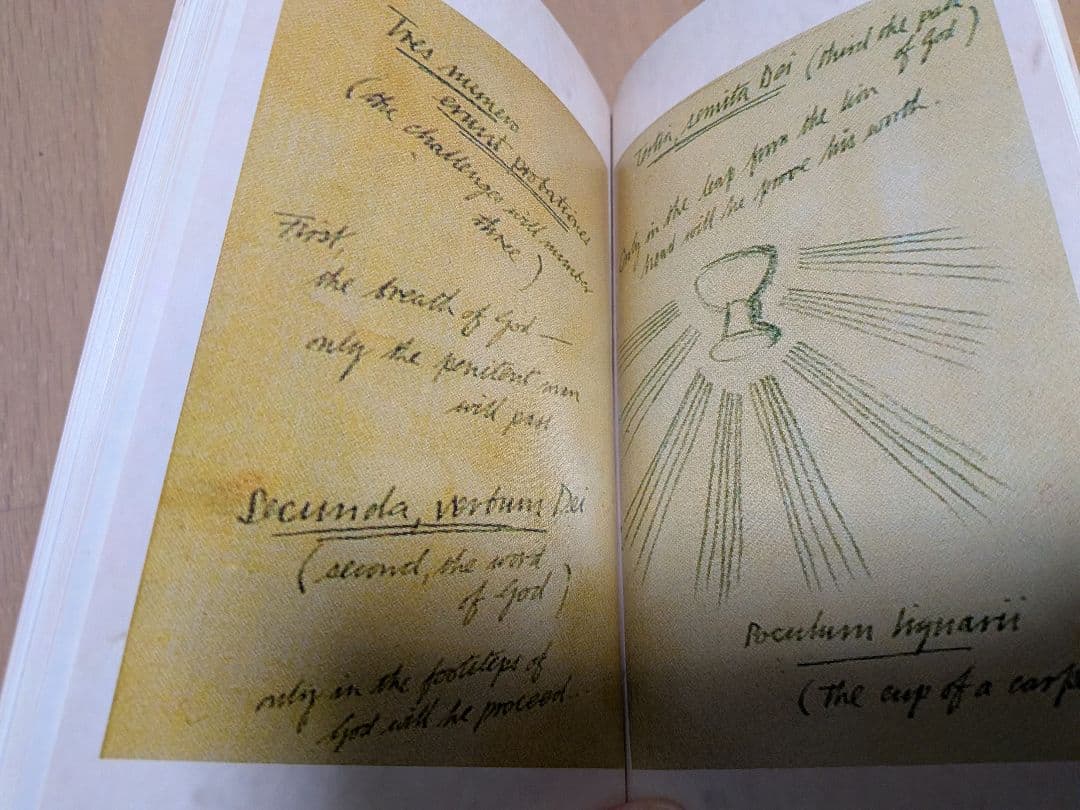 Tres numero
erunt probationes
(the challenges will number
three)
First,
the breath of God —
only the penitent man
will pass
Secunda, verbum Dei
(second, the word
of God)
only in the footsteps of
God will he proceed.
Tertia, semita Dei (third the path
of God)
Only in the leap from the lion
head will he prove his worth.
Poculum lignarii
(The cup of a carpe